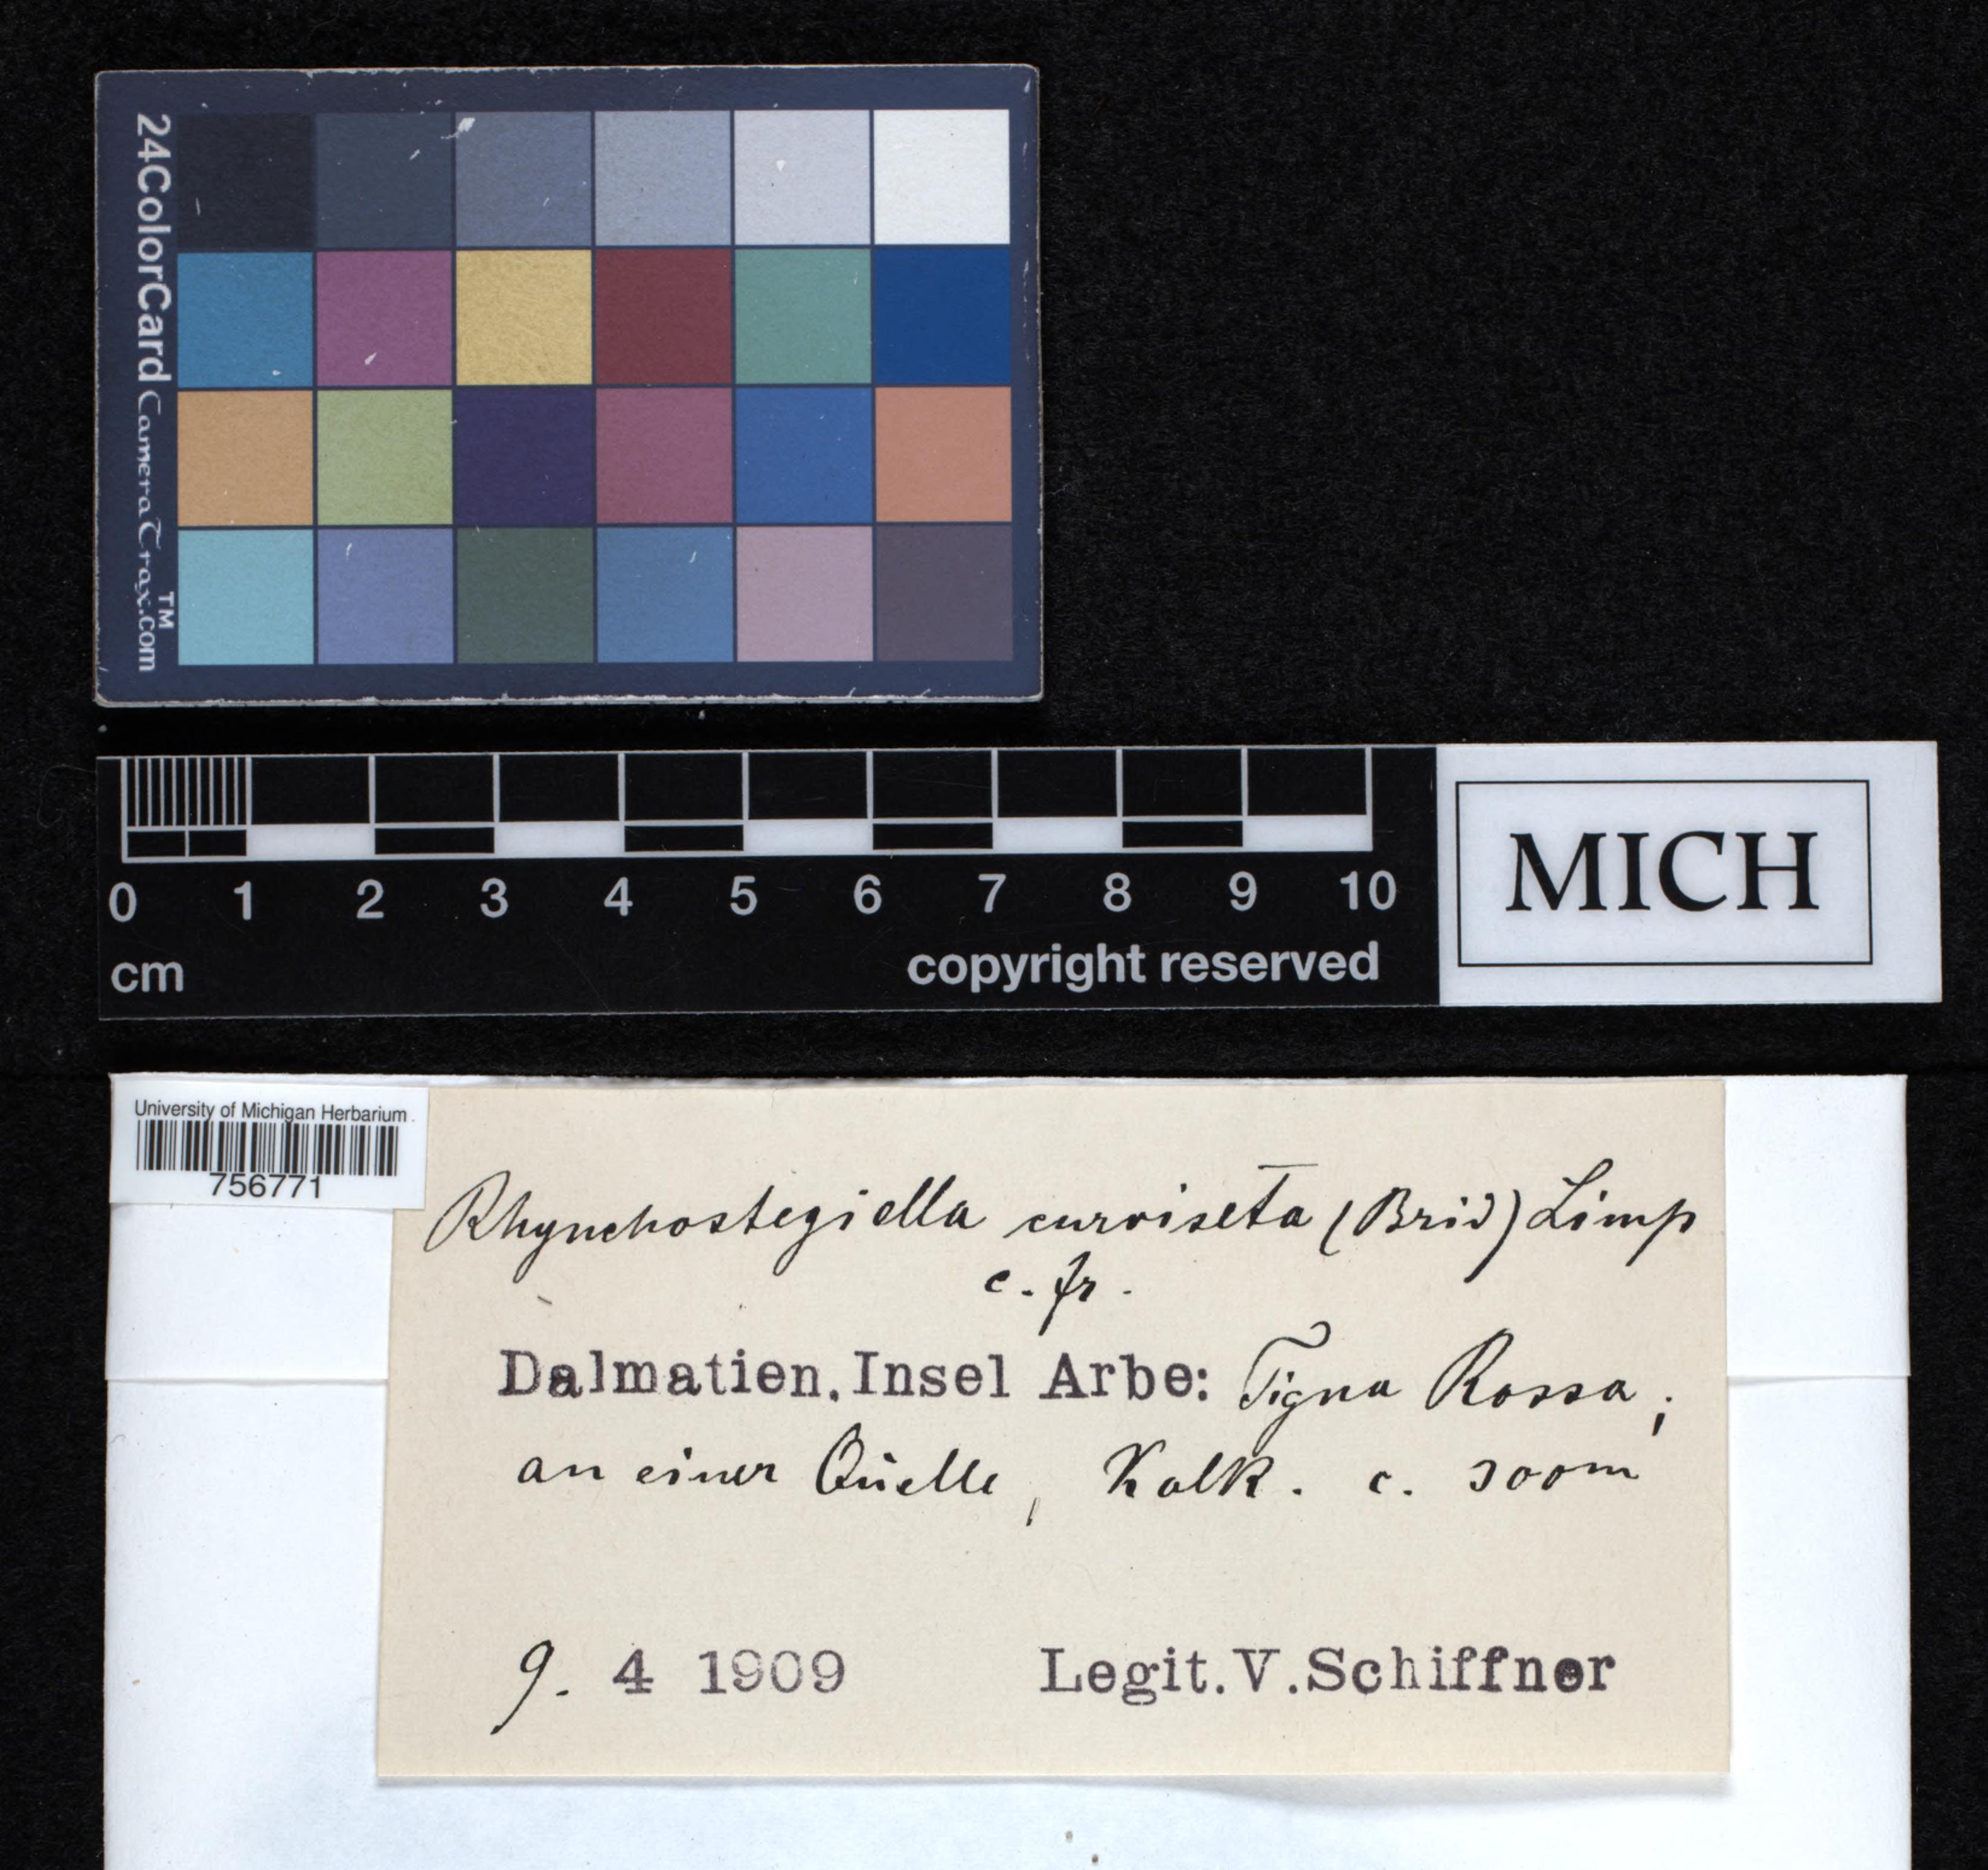 24ColorCard CameraTrax.com
TM
0 1 2 3 4 5 6 7 8 9 10
cm
copyright reserved
MICH
University of Michigan Herbarium
756771
Rhynchostegiella curviseta (Brid) Limp
c. fr.
Dalmatien. Insel Arbe: Tigna Rossa;
an einer Quelle, Kalk. c. 300m
9. 4 1909
Legit. V. Schiffner